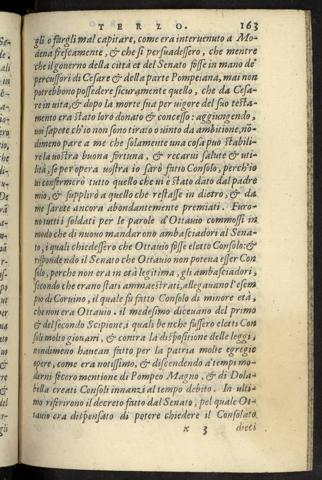 TERZO. 163
gli o fargli mal capitare, come era interuenuto a Mo-
dena frescamente, & che si persuadessero, che mentre
che il gouerno della città et del Senato fosse in mano de'
percussori di Cesare & della parte Pompeiana, mai non
potrebbono possedere sicuramente quello, che da Cesa-
re in uita, & dopo la morte sua per uigore del suo testa-
mento era stato loro donato & concesso: aggiungendo,
uoi sapete ch'io non sono tirato o uinto da ambitione, no-
dimeno pare a me che solamente una cosa puo stabili-
re la uostra buona fortuna, & recarui salute & uti-
lità, se per opera uostra io sarò fatto Consolo, perch'io
ui confermerò tutto quello che ui è stato dato dal padre
mio, & supplirò a quello che restasse in dietro, & da
me sarete ancora abondantemente premiati. Furo-
no tutti i soldati per le parole d'Ottauio commossi in
modo che di nuouo mandarono ambasciadori al Sena-
to, i quali chiedessero che Ottauio fosse eletto Consolo: &
rispondendo il Senato che Ottauio non poteua esser Con
solo, perche non era in età legitima, gli ambasciadori,
secondo che erano stati ammaestrati, allegauano l'esem
pio di Coruino, il quale fu fatto Consolo di minore età,
che non era Ottauio. il medesimo diceuano del primo
& del secondo Scipione, i quali benche fussero eletti Con
soli molto giouani, & contra la dispositione delle leggi,
nondimeno haueano fatto per la patria molte egregie
opere, come era notissimo, & discendendo a' tempi mo-
derni fecero mentione di Pompeo Magno, & di Dola-
bella creati Consoli innanzi al tempo debito. In ulti-
mo riferirono il decreto fatto dal Senato, pel quale Ot-
tauio era dispensato di potere chiedere il Consolato
x 3 dieci